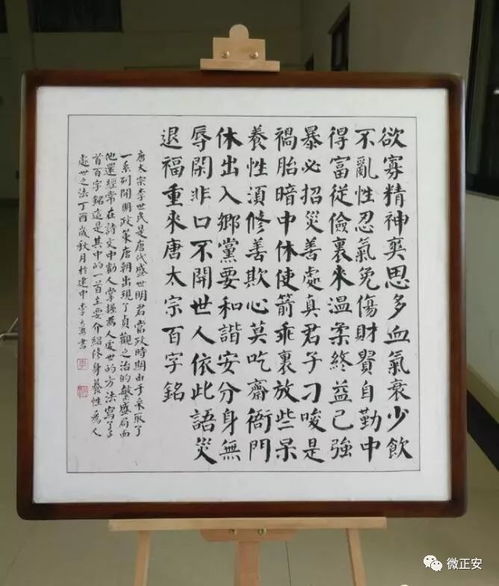 欲寡精神爽思多血氣衰少飲
不亂性忍氣免傷財貴自勤中
得富從儉裏来温柔終益己強
暴必招災善處真君子刁唆是
禍胎暗中休使箭乖裏放些呆
養性須修善欺心莫吃齋衙門
休出入鄉黨要和諧安分身無
辱閑非口不開世人依此語災
退福重来唐太宗百字銘
唐太宗李世民是唐代盛世明君當政時期由于采取了
一系列開明政策唐朝出現了貞觀之治的繁盛局面
他還經常在詩文中勸人掌握為人處世的方法寫了
首百字銘這是其中的一首主要介紹修身養性為人
處世之法丁酉歲秋月於建中李書
微正安